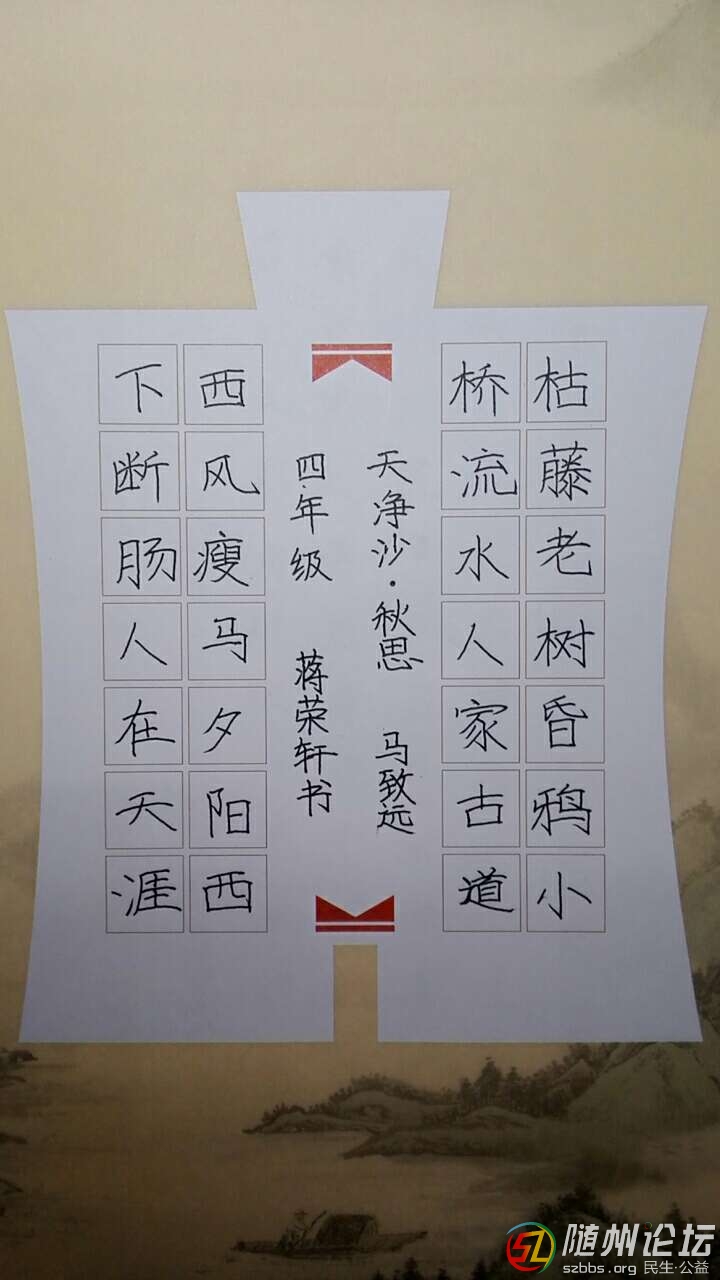 枯藤老树昏鸦小
桥流水人家古道
天净沙·秋思 马致远
四年级 蒋荣轩书
西风瘦马夕阳西
下断肠人在天涯
随州论坛
szbbs.org 民生·公益